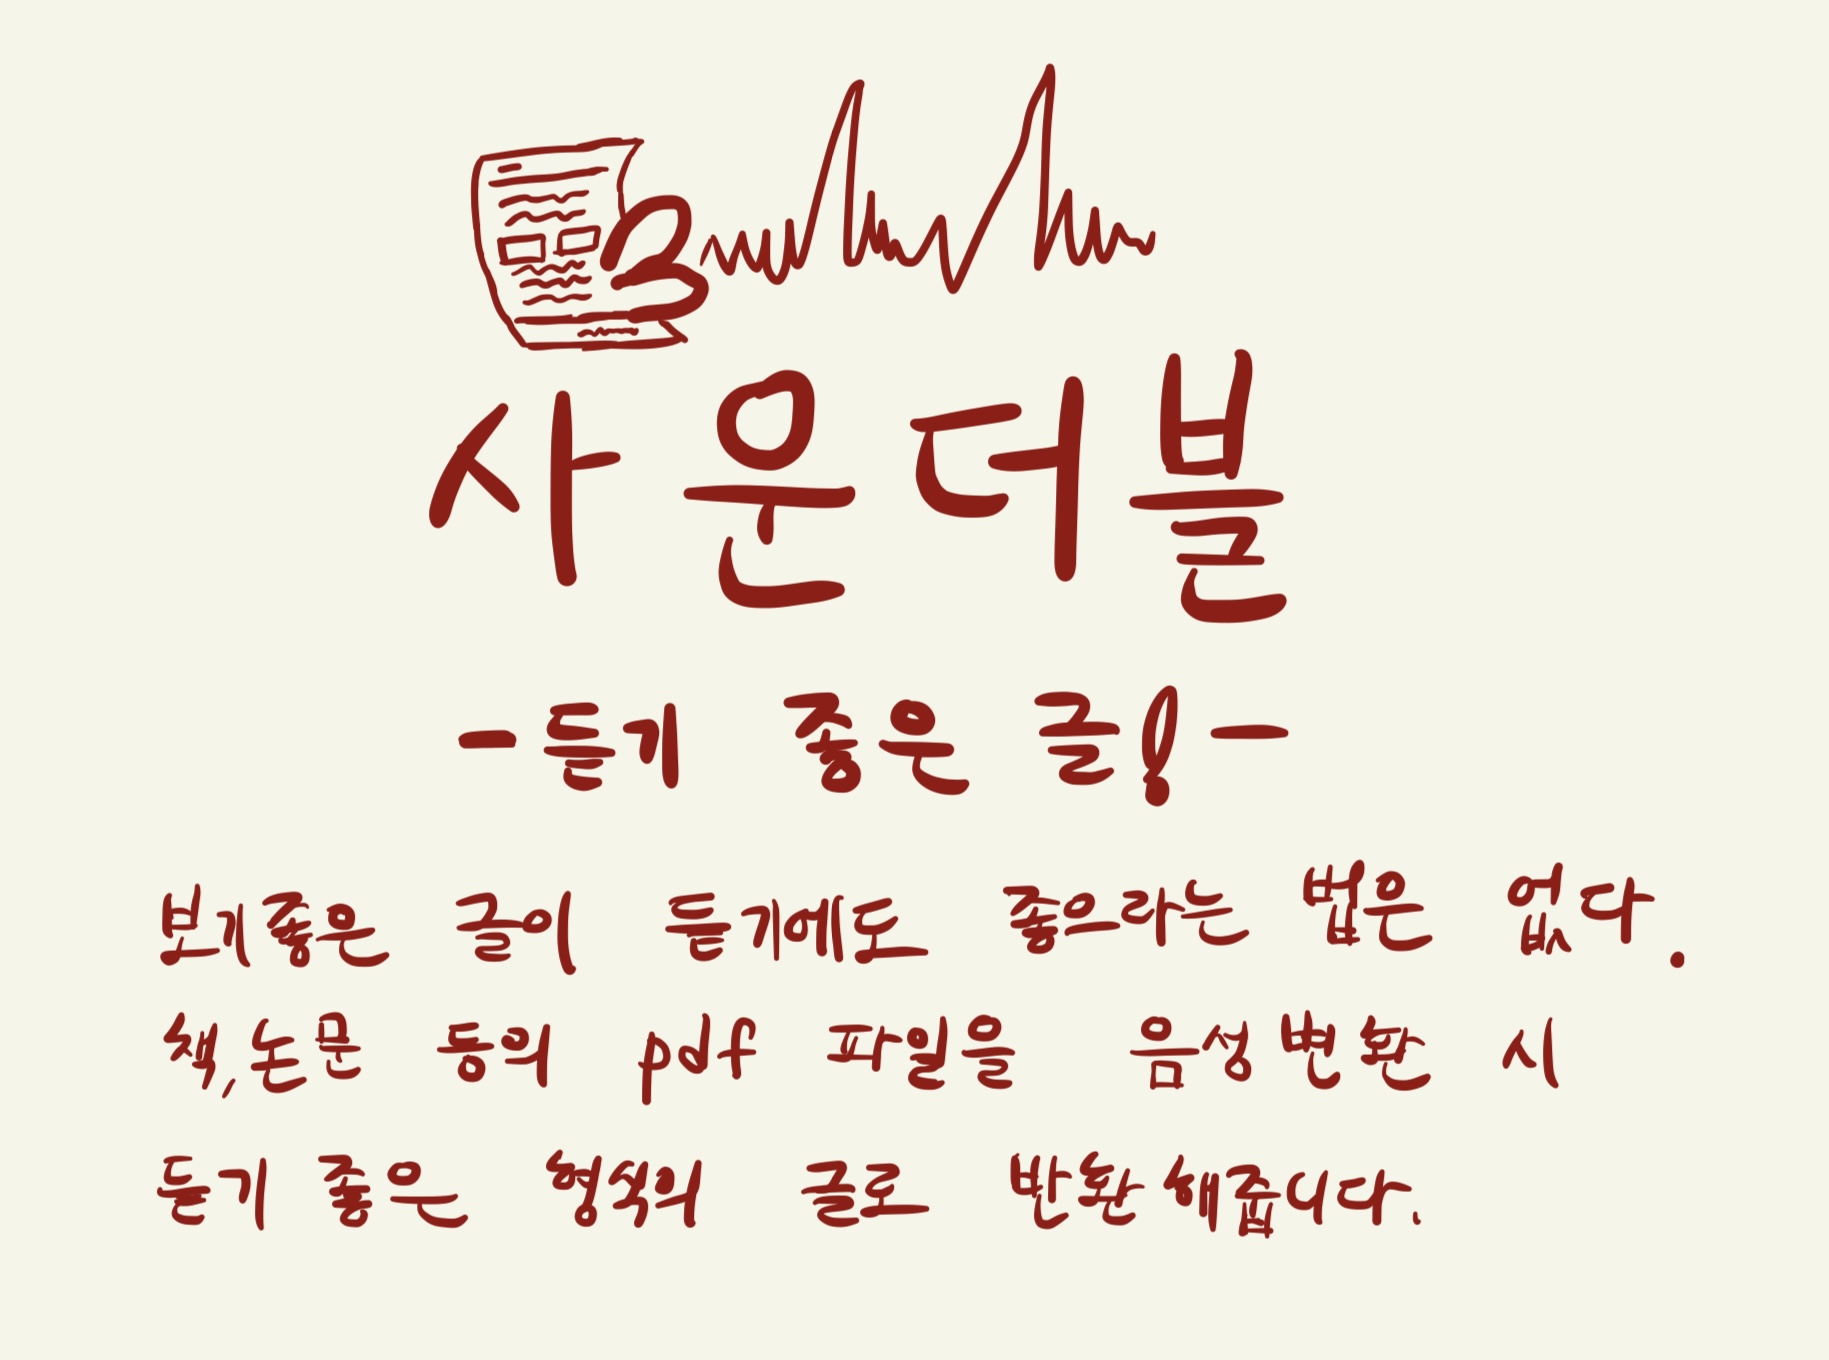 사운더블
-듣기 좋은 글!-
보기좋은 글이 듣기에도 좋으라는 법은 없다.
책, 논문 등의 pdf 파일을 음성변환 시
듣기 좋은 형식의 글로 반환해줍니다.